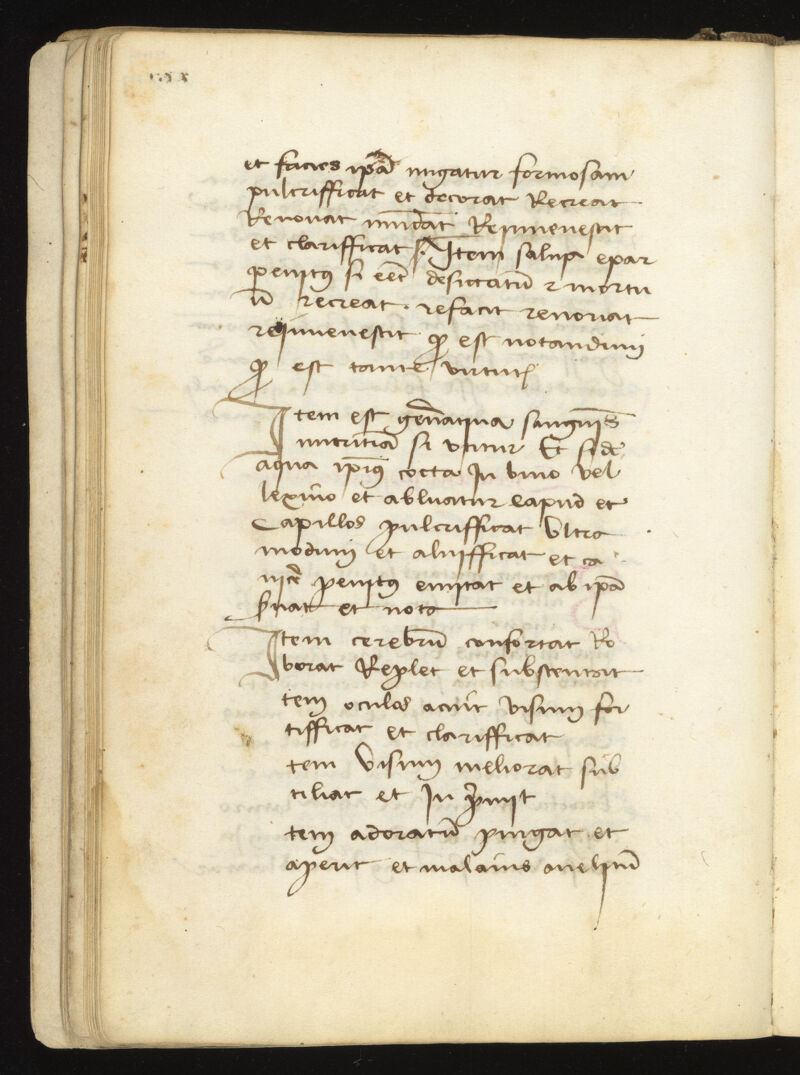 et facies ip̄ā nugatur formosam
pulcrifficat et decorat Recreat
Renovat mūdat Reiuuenescit
et clarifficat Item salua epar
penitus si eēt desiccatū et mortu
ū recreat refacit renovat
reiuuenescit qꝫ est notandum
qꝫ est tante virtutꝭ
Item est gen̄atiua sanguis̄
nutritiā si utitur Et si de
aqua ipīus cocta In vino vel
lexiuio et abluatur Caput et
Capillos pulcrifficat Vltra
modum et aluifficat et ca
nicē penitus euitat et ab ipā
s̄uat et nota
Item cerebrū confortat Ro
borat Replet et substentat
tem oculos acuit visum for
tifficat et clarifficat
tem Visum meliorat sub
tiliat et In
tem adoratū purgat et
aperit et malauis anelitū